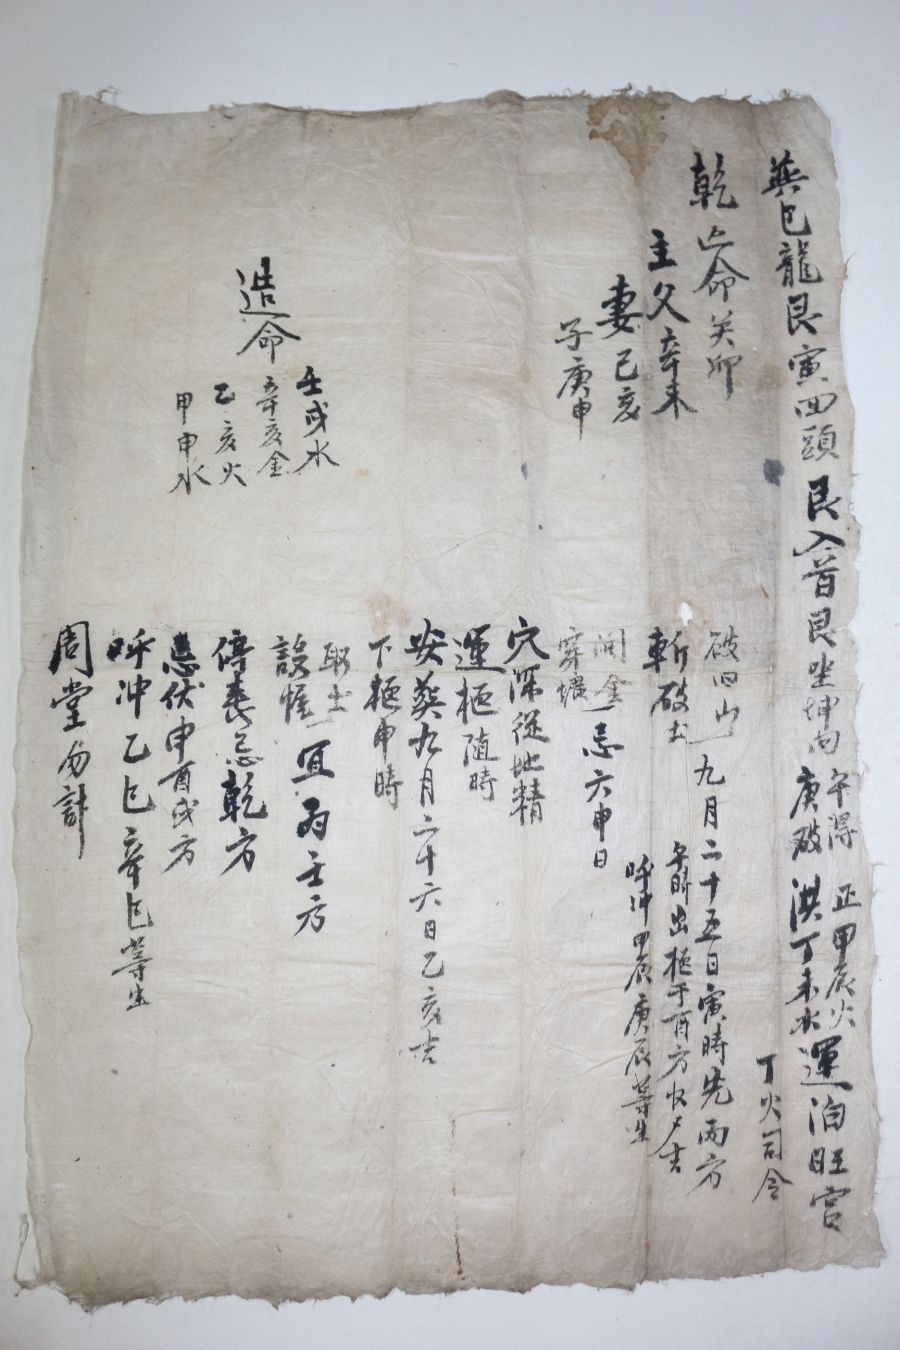 巳龍艮寅回頭艮入首艮坐坤向 午得 庚破 正甲辰火 洪丁未水 運泊旺宮
丁火司令
乾亡命癸卯
主父辛未
妻己亥
子庚申
破旧山
斬破土
九月二十五日寅時先丙方
午時出柩于酉方收夕吉
呼冲甲辰庚辰等生
開金
穿壙
忌六申日
穴深從地精
運柩随時
安葬九月二十六日乙亥吉
下柩申時
取土
設
宜丙壬方
停喪忌乾方
伏申酉戌方
呼冲乙巳辛巳等生
周堂勿計
造命
壬戌水
辛亥金
乙亥火
甲申水